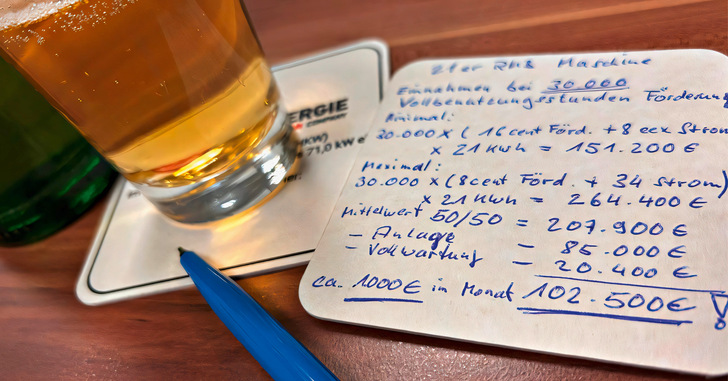 21er RMB Maschine
Einnahmen bei 30.000
Vollbenutzungsstunden Förderung
Minimal:
30.000 x (16 cent Förd. + 8 eex Strom
x 21 kWh = 151.200 €
Maximal:
30.000 x (8 cent Förd. + 34 Strom)
x 21 kWh = 264.400 €
Mittelwert 50/50 = 207.900 €
- Anlage - 85.000 €
- Vollwartung - 20.400 €
ca. 1000 € im Monat 102.500 € !
ERGIE
COMPANY
KW)
71,0 kW e